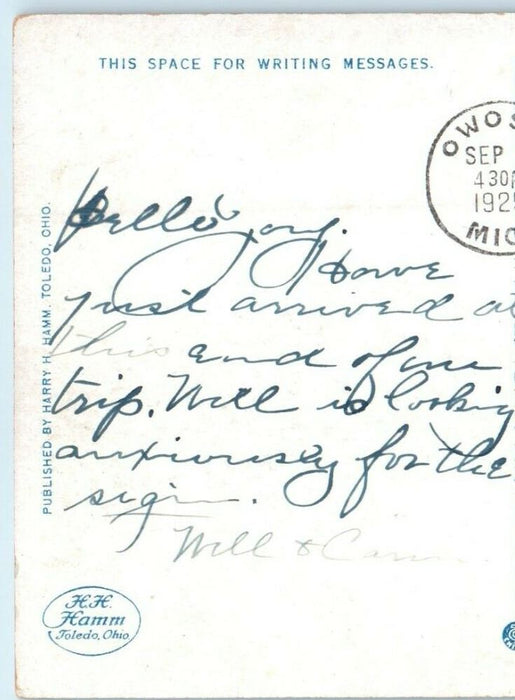 THIS SPACE FOR WRITING MESSAGES.
OWOS
SEP
430
192
MIC
PUBLISHED BY HARRY H. HAMM. TOLEDO, OHIO.
Hello
Have
just arrived at
this end of our
trip. Will is looking
anxiously for the
sign.
Will &
H.H.
Hamm
Toledo, Ohio